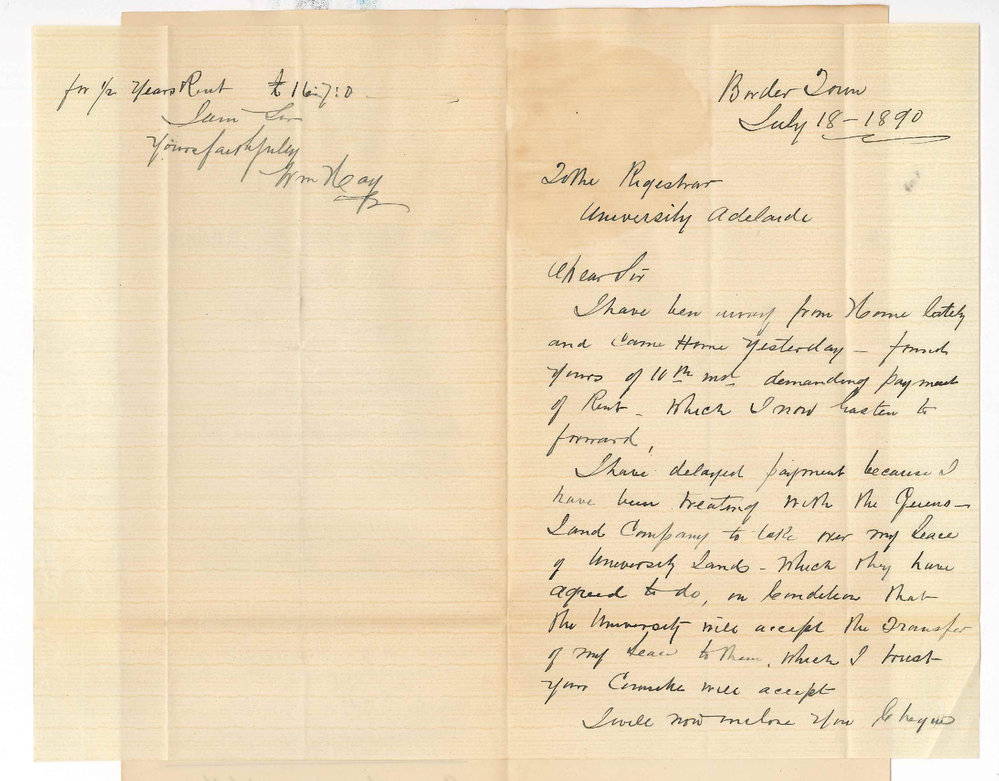 Border Town
July 18 - 1890
To the Regestrar
University Adelaide
Dear Sir
I have ben away from Home lately
and Came Home Yesterday - found
Yours of 10th inst demanding payment
of Rent - Which I now hasten to
forward,
I have delayed payment because I
have been treating with the Queens-
Land Company to take over my Lease
of University Lands - Which they have
agreed to do, on Condition that
the University will accept the Transfer
of my Lease to them, which I trust
Your will accept
I will now inclose You Cheque
for 1/2 Years Rent £16:7:0
I am Sir
Yours faithfully
Wm Hay